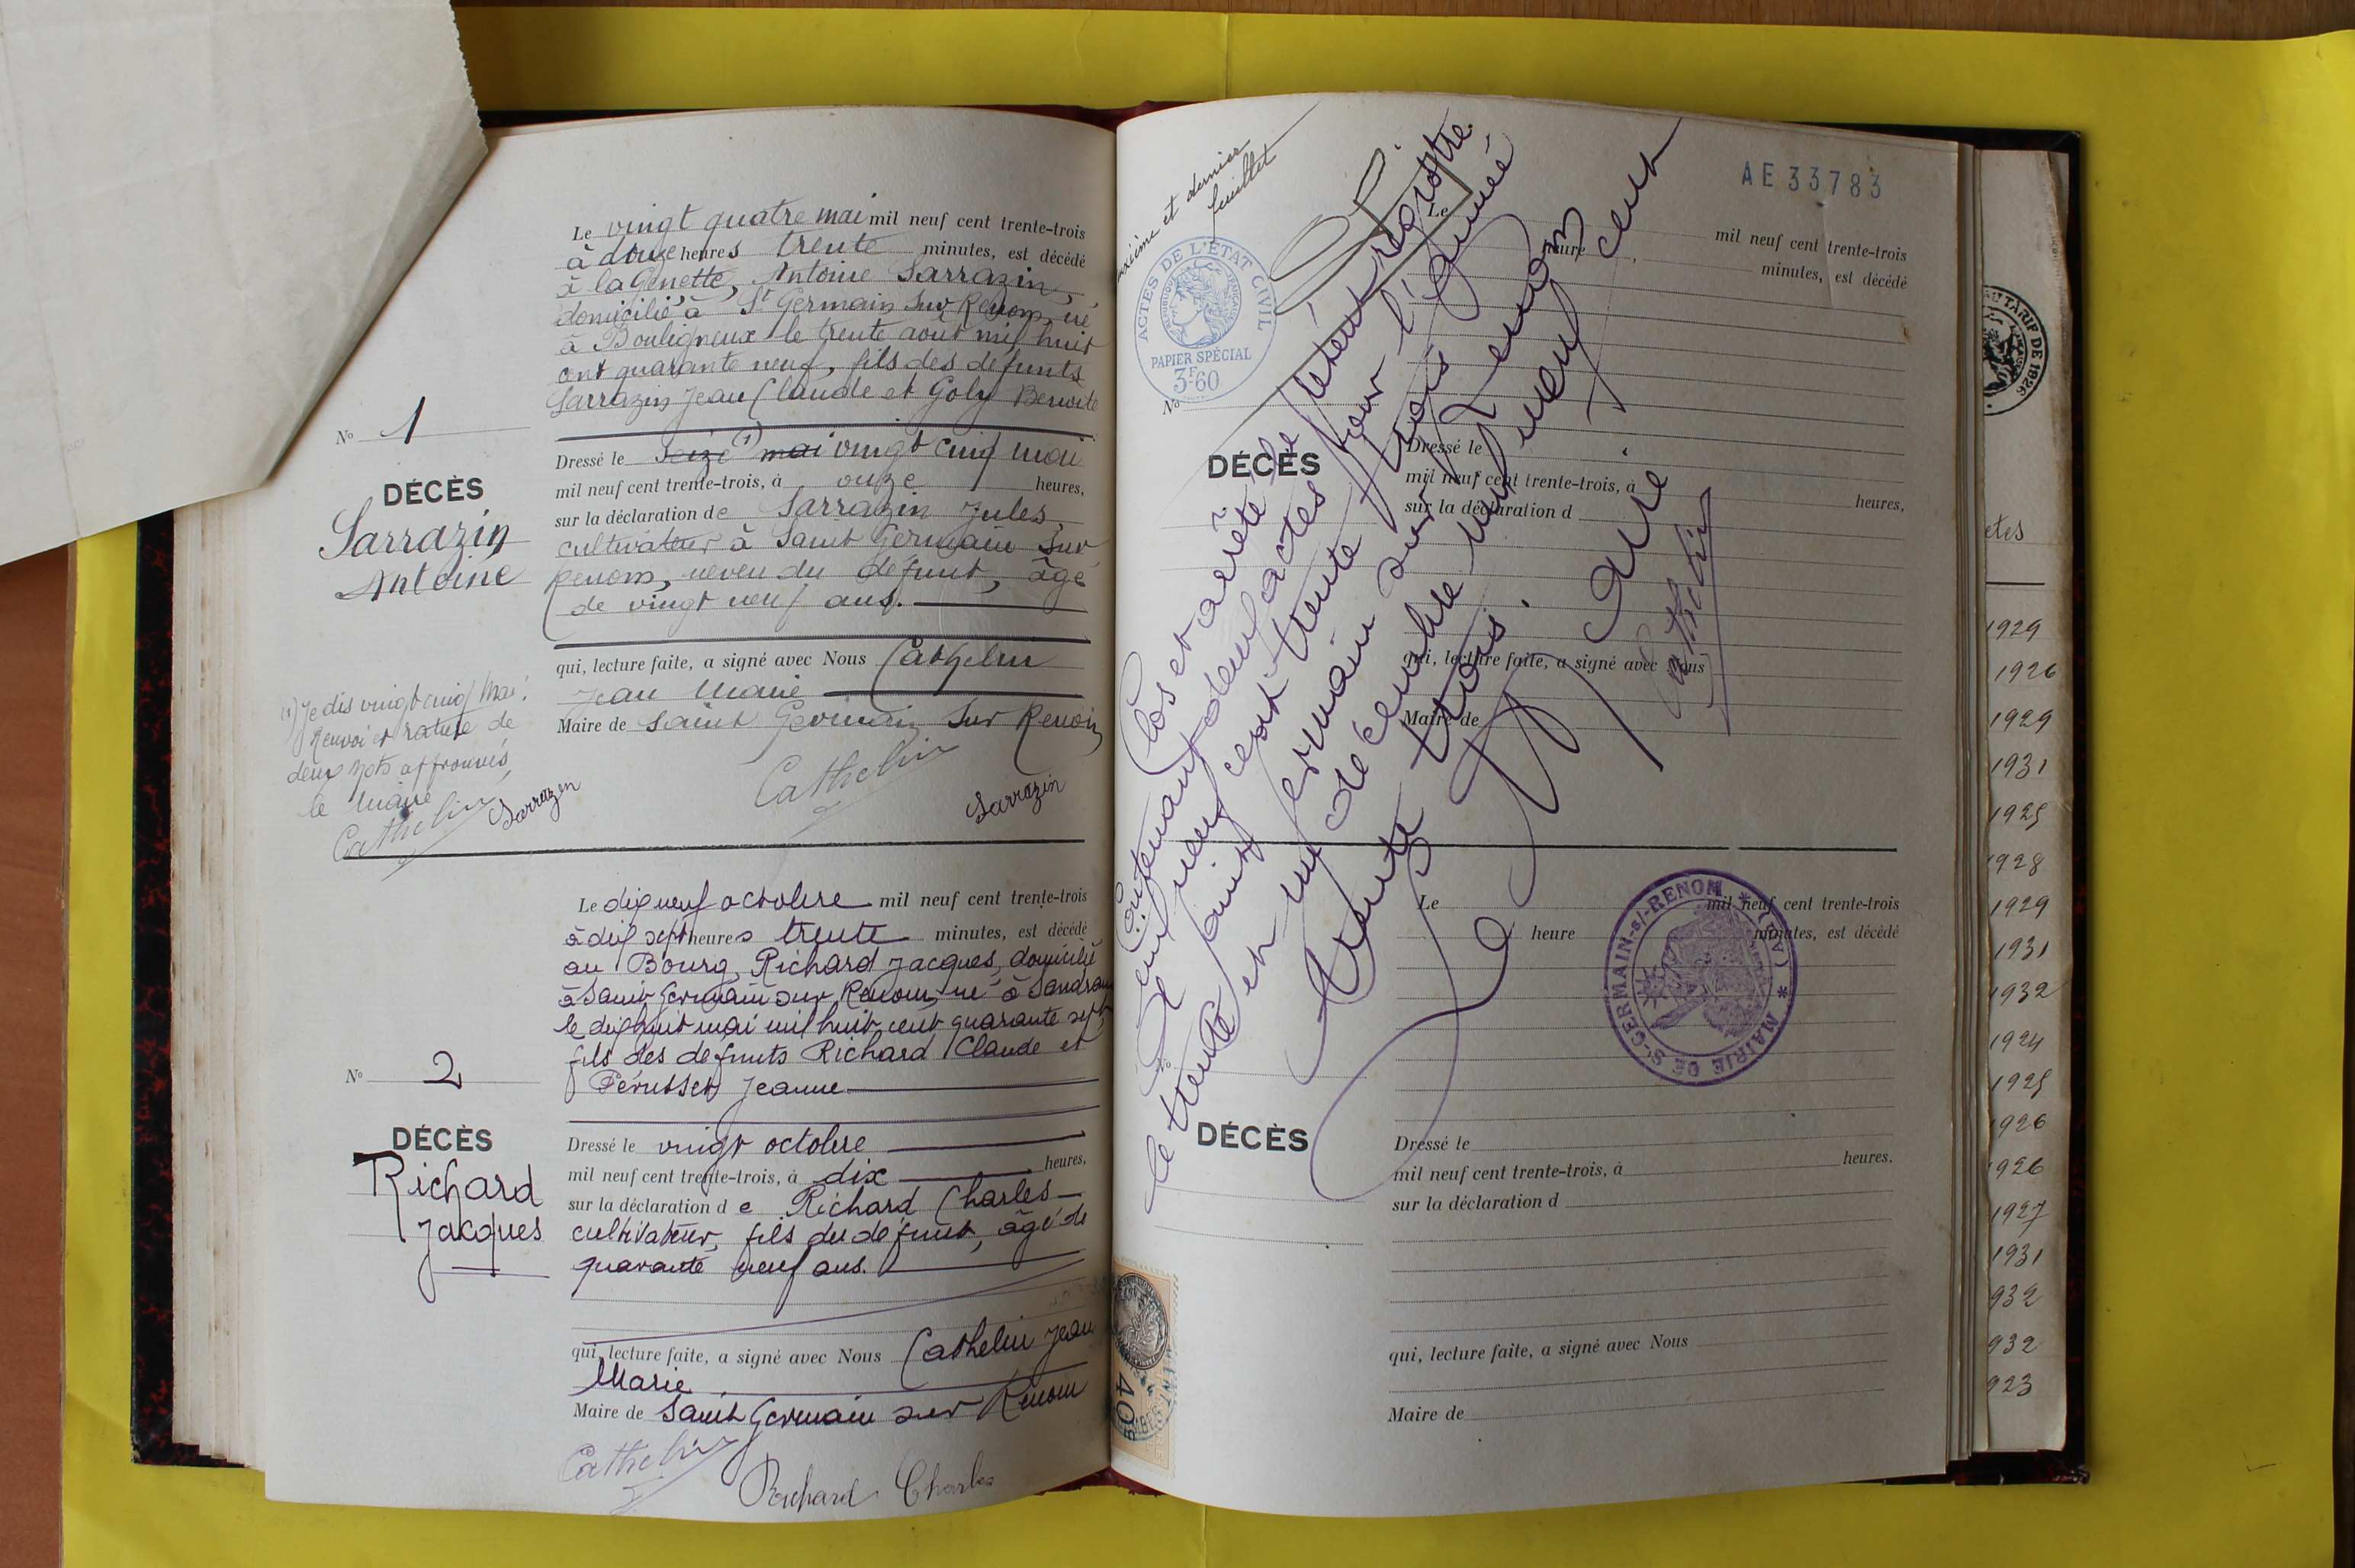 Le vingt quatre mai mil neuf cent trente-trois
à douze heures trente minutes, est décédé
à la Genette, Antoine Sarrazin,
domicilié à St Germain sur Renom, né
à Bouligneux le trente août mil huit
cent quarante neuf, fils des défunts
Sarrazin Jean Claude et Goly Benoite
No 1
DÉCÈS
Sarrazin
Antoine
Dressé le Seize (1) mai vingt cinq mai
mil neuf cent trente-trois, à onze heures,
sur la déclaration de Sarrazin Jules,
cultivateur à Saint Germain sur
Renom, neveu du défunt, âgé
de vingt neuf ans.
qui, lecture faite, a signé avec Nous Cathelin
Jean Marie
Maire de Saint Germain sur Renom
(1) Je dis vingt cinq mai.
Renvoi et rature de
deux mots approuvés,
le Maire
Cathelin Sarrazin
Cathelin
Sarrazin
Le dix neuf octobre mil neuf cent trente-trois
à dix sept heures trente minutes, est décédé
au Bourg, Richard Jacques, domicilié
à Saint Germain sur Renom, né à Sandrans
le dix huit mai mil huit cent quarante sept,
fils des defunts Richard Claude et
Pérusset Jeanne
No 2
DÉCÈS
Richard
Jacques
Dressé le vingt octobre
mil neuf cent trente-trois, à dix heures,
sur la déclaration de Richard Charles
cultivateur, fils du défunt, âgé de
quarante neuf ans.
qui, lecture faite, a signé avec Nous Cathelin Jean
Marie
Maire de Saint Germain sur Renom
Cathelin
Richard Charles
et dernier
feuillet
ACTES DE L'ÉTAT CIVIL
RÉPUBLIQUE FRANÇAISE
PAPIER SPÉCIAL
3F60
AE 33783
Clos et arrêté le présent registre
Contenant deux actes pour l'année
mil neuf cent trente trois
A Saint Germain sur Renom
le trente et un décembre mil neuf cent
trente trois.
Le Maire
Cathelin
Le
heure
mil neuf cent trente-trois
minutes, est décédé
No
DÉCÈS
Dressé le
mil neuf cent trente-trois, à heures,
sur la déclaration d
qui, lecture faite, a signé avec Nous
Maire de
Le mil neuf cent trente-trois
heure minutes, est décédé
MAIRIE DE St-GERMAIN-s/-RENOM * (AIN) *
DÉCÈS
Dressé le
mil neuf cent trente-trois, à heures.
sur la déclaration d
qui, lecture faite, a signé avec Nous
Maire de
40
AU TARIF DE 1926
1929
1926
1929
1931
1925
1928
1929
1931
1932
1924
1925
1926
926
1927
1931
932
932
923